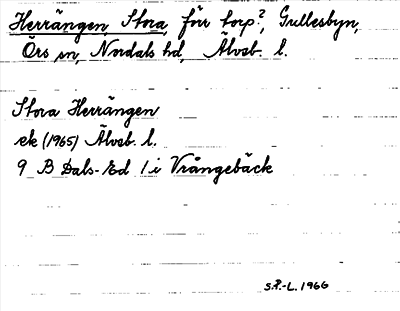 Herrängen, Stora, förr torp?, Gullesbyn,
Örs sn, Nordals hd, Älvsb. l.
Stora Herrängen
ek (1965) Älvsb. l.
9 B Dals-Ed 1 i Vrångebäck
S.P.-L. 1966